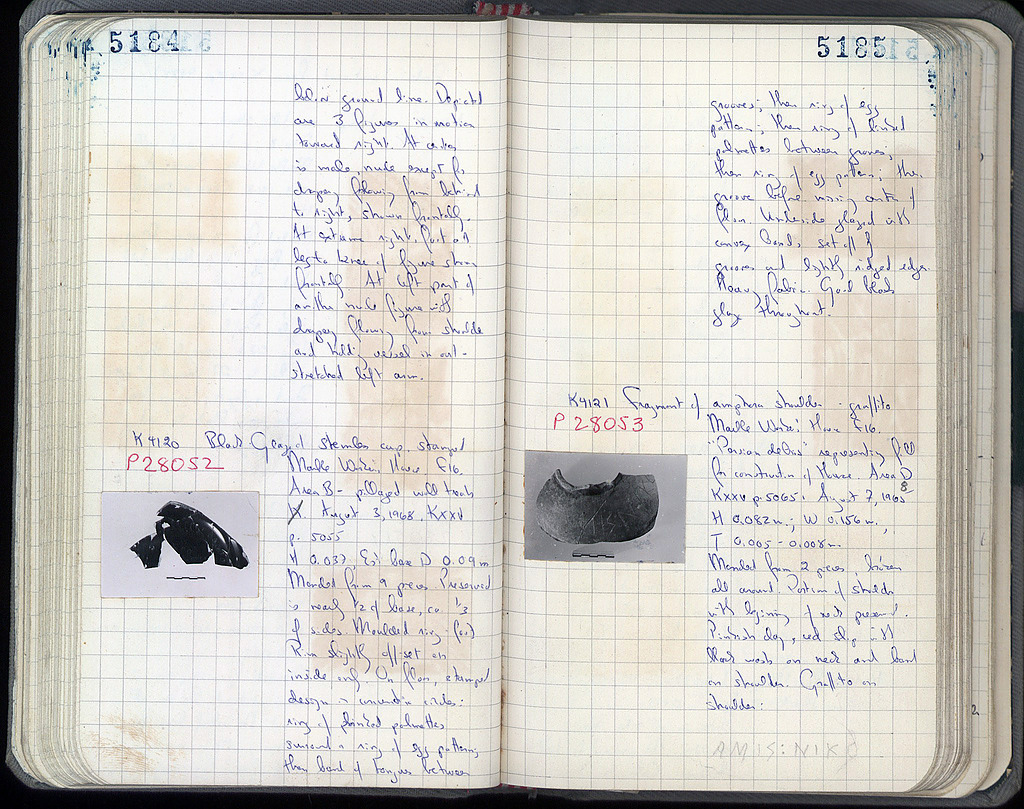 5184
below ground line. Depicted
are 3 figures in motion
toward right. At center
is male, nude except for
drapery flowing from behind
to right, shown frontally.
At extreme right, foot and
leg to knee of figure shown
frontally. At left part of
another nude figure with
drapery flowing from shoulder
and holding vessel in out-
stretched left arm.
K4120 Black Glazed stemless cup, stamped
P28052
Marble Workers' House F16.
Area B - pillaged wall trench
August 3, 1968, KXXV
p. 5055
H 0.037, Est base D 0.09 m
Mended from 9 pieces. Preserved
is nearly 1/2 of base, ca. 1/3
of sides. Moulded ring
Rim slightly off-set on
inside only. On floor, stamped
design in concentric circles:
ring of linked palmettes
around a ring of egg pattern;
then band of tongues between
5185
grooves; then ring of egg
pattern; then ring of linked
palmettes between grooves;
then ring of egg pattern; then
groove before missing center of
floor. Underside glazed with
convex band, set of 3
grooves and lightly ridged edge.
Heavy fabric. Good black
glaze throughout.
K4121 Fragment of amphora shoulder - graffito
P28053
Marble Workers' House F16.
"Persian debris" representing fill
for construction of House. Area D
KXXV p. 5065. August 7, 1968
H 0.082 m.; W 0.156 m.,
T 0.005 - 0.008 m.
Mended from 2 pieces, broken
all around. Portion of shoulder
with beginning of neck preserved.
Pinkish clay, red slip with
black wash on neck and band
on shoulder. Graffito on
shoulder:
AMIS:NIK